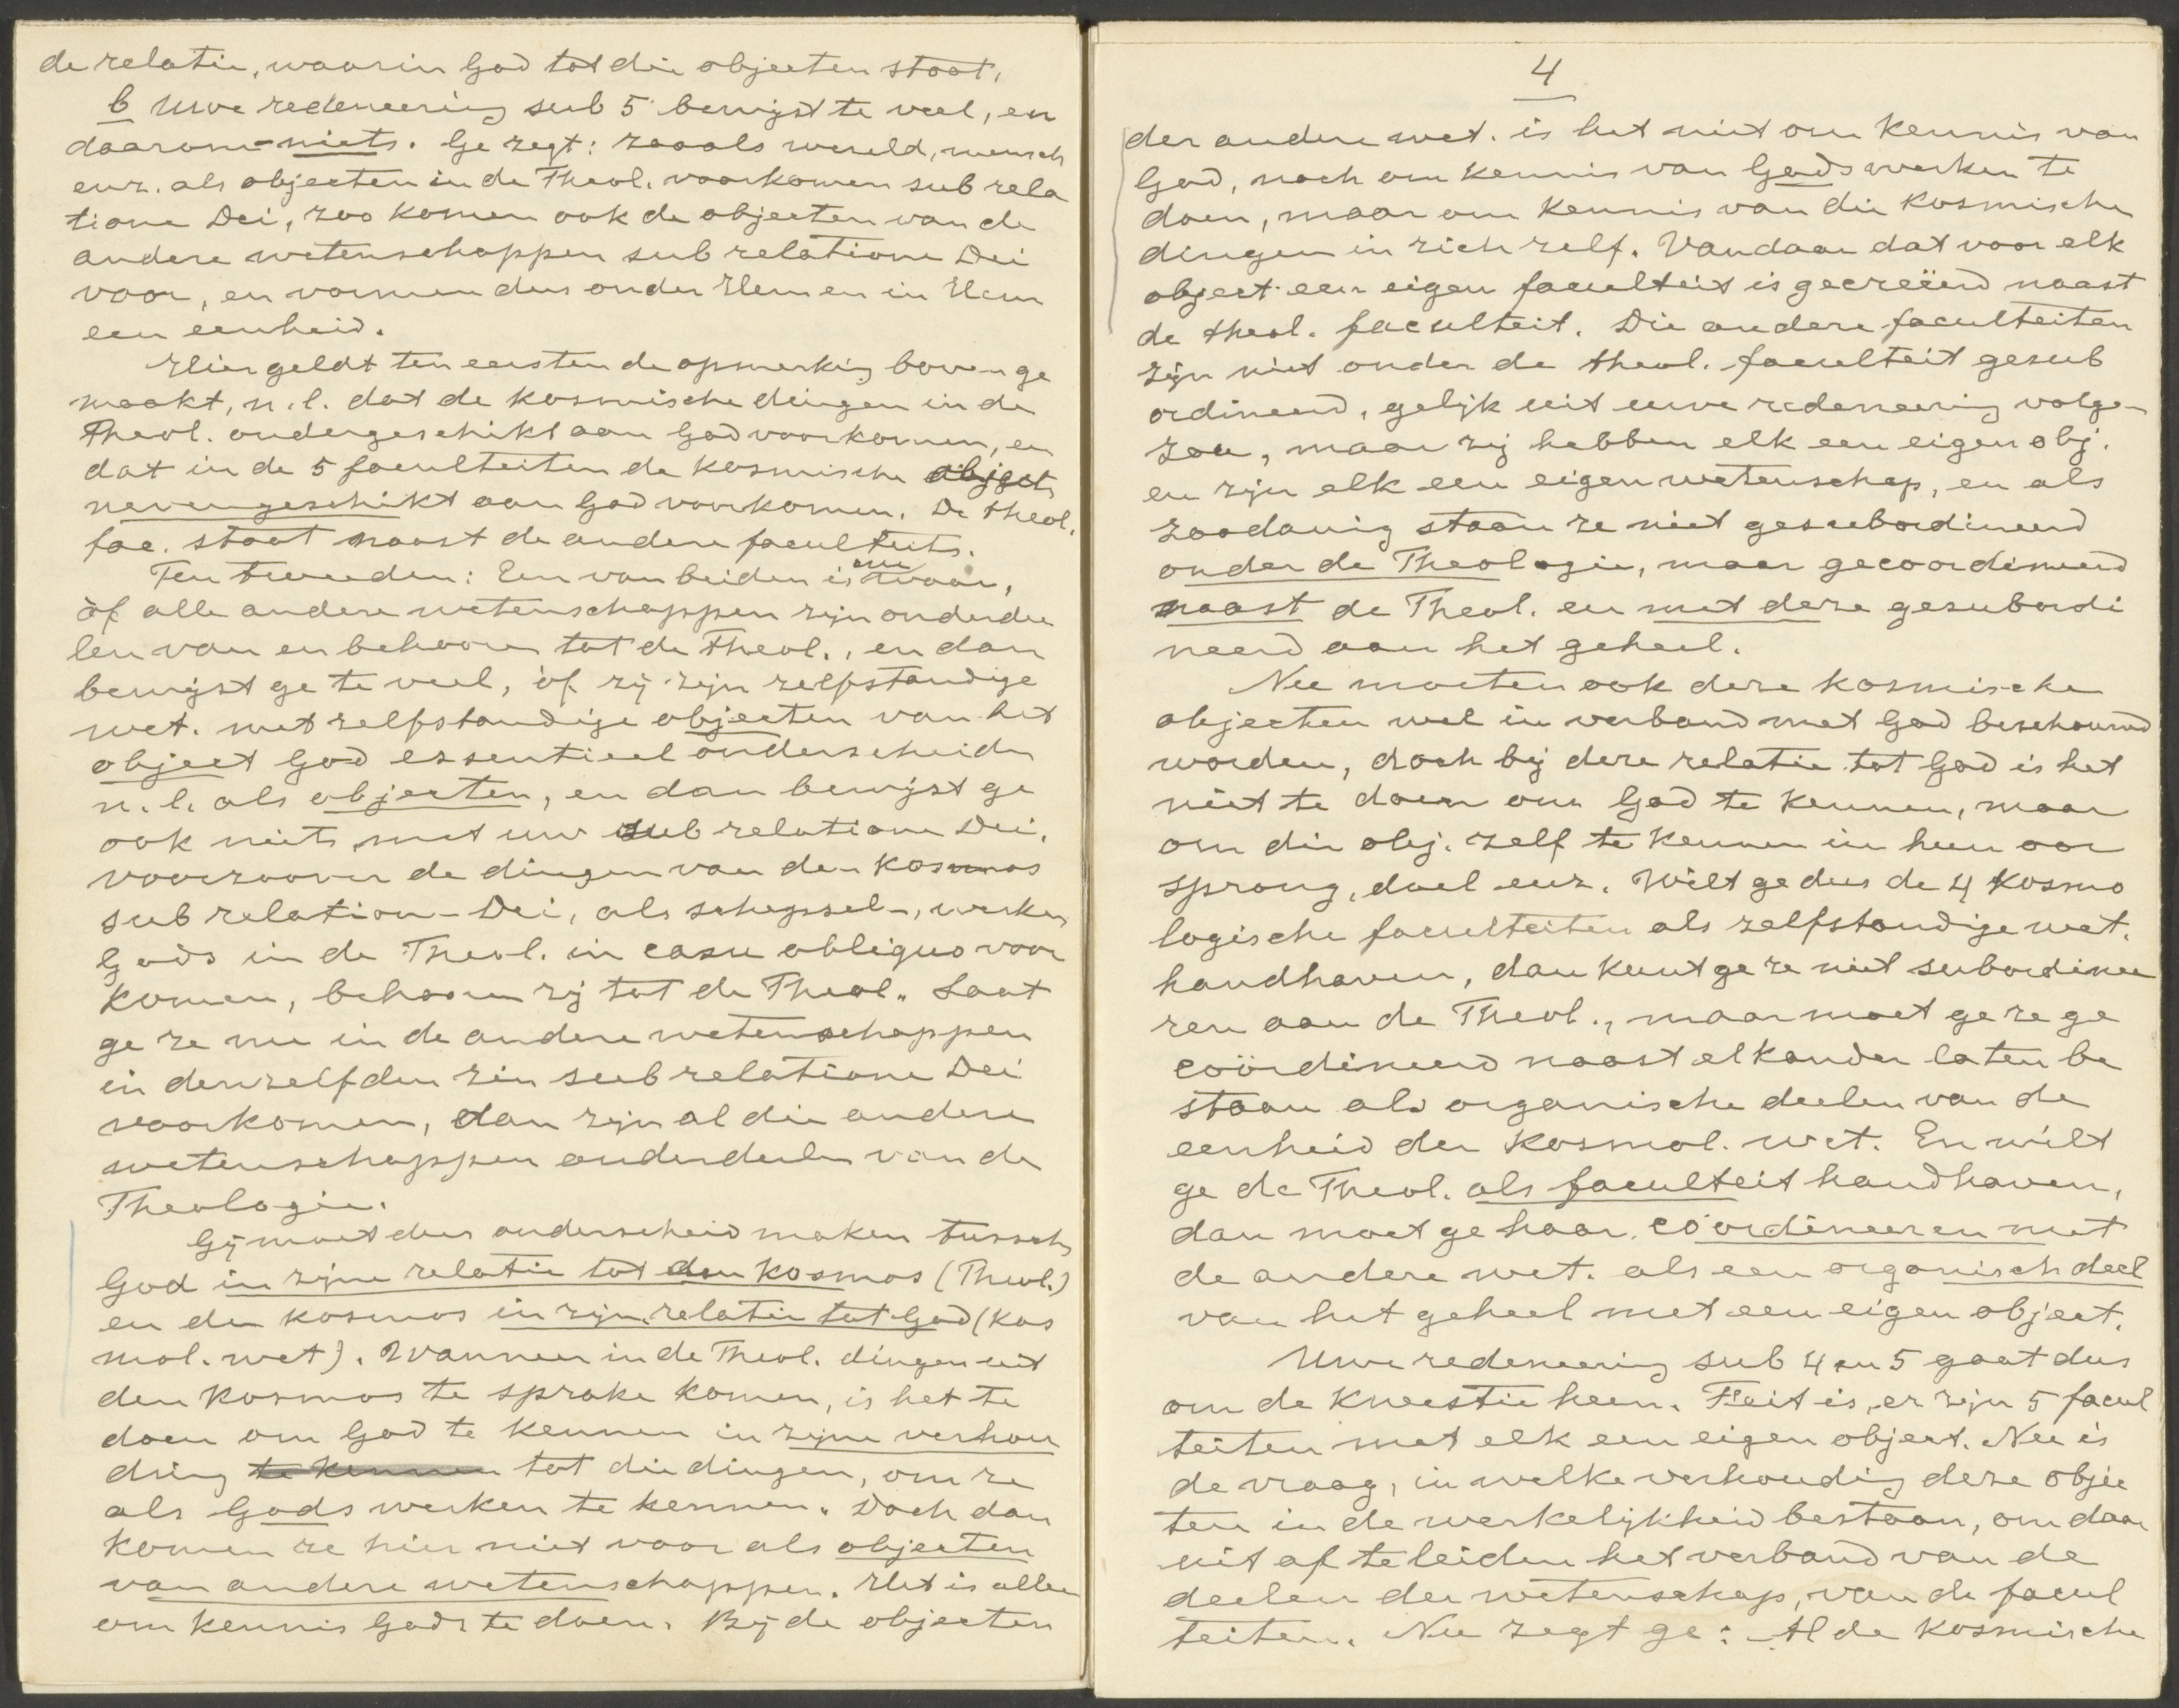 de relatie, waarin God tot die objecten staat,
b Uwe redeneering sub 5 bewijst te veel, en
daarom - niets. Ge zegt: zooals wereld, mensch
enz. als objecten in de Theol. voorkomen sub rela
tione Dei, zoo komen ook de objecten van de
andere wetenschappen sub relatione Dei
voor, en vormen dus onder Hem en in Hem
een éenheid.
Hier geldt ten eersten de opmerking boven ge
maakt, n.l. dat de kosmische dingen in de
Theol. ondergeschikt aan God voorkomen, en
dat in de 5 faculteiten de kosmische object
nevengeschikt aan God voorkomen. De theol.
fac. staat naast de andere faculteits.
Ten tweeden: Een van beiden is waar,
òf alle andere wetenschappen zijn onderdee
len van en behooren tot de Theol., en dan
bewijst ge te veel, òf zij zijn zelfstandige
wet. met zelfstandige objecten van het
object God essentieel onderscheiden
n.l. als objecten, en dan bewijst ge
ook niets met uw sub relatione Dei.
voorzoover de dingen van den kosmos
sub relation- Dei, als schepsel-, werken
Gods in de Theol. in casu obliquo voor
komen, behooren zij tot de Theol. Laat
ge ze nu in de andere wetenschappen
in denzelfden zin sub relatione Dei
voorkomen, dan zijn al die andere
wetenschappen onderdeelen van de
Theologie.
Gij moet dus onderscheid maken tussch
God in zijne relatie tot den kosmos (Theol.)
en den kosmos in zijn relatie tot God (Kos
mol. wet). Wanneer in de Theol. dingen uit
den kosmos te sprake komen, is het te
doen om God te kennen in zijne verhou
ding te kennen tot die dingen, om ze
als Gods werken te kennen. Doch dan
komen ze hier niet voor als objecten
van andere wetenschappen. Het is alleen
om kennis Gods te doen. Bij de objecten
4
der andere wet. is het niet om kennis van
God, noch om kennis van Gods werken te
doen, maar om kennis van die kosmische
dingen in zich zelf. Vandaar dat voor elk
object een eigen faculteit is gecreëerd naast
de theol. faculteit. Die andere faculteiten
zijn niet onder de theol. faculteit gesub
ordineerd, gelijk uit uwe redeneering volgen
zou, maar zij hebben elk een eigen obj.
en zijn elk een eigen wetenschap, en als
zoodanig staan ze niet gesubordineerd
onder de Theologie, maar gecoordineerd
naast de Theol. en met deze gesubordi
neerd aan het geheel.
Nu moeten ook deze kosmische
objecten wel in verband met God beschouwd
worden, doch bij deze relatie tot God is het
niet te doen om God te kennen, maar
om die obj. zelf te kennen in hun oor
sprong, doel enz. Wilt ge dus de 4 kosmo
logische faculteiten als zelfstandige wet.
handhaven, dan kunt ge ze niet subordinee
ren aan de Theol., maar moet ge ze ge
coördineerd naast elkander laten be
staan als organische deelen van de
eenheid der kosmol. wet. En wilt
ge de Theol. als faculteit handhaven,
dan moet ge haar coördineeren met
de andere wet. als een organisch deel
van het geheel met een eigen object.
Uwe redeneering sub 4 en 5 gaat dus
om de kwestie heen. Feit is, er zijn 5 facul
teiten met elk een eigen object. Nu is
de vraag, in welke verhouding deze objec
ten in de werkelijkheid bestaan, om daar
uit af te leiden het verband van de
deelen der wetenschap, van de facul
teiten. Nu zegt ge: Al de kosmische